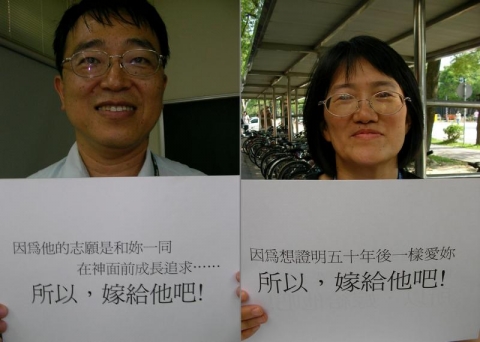 因為他的志願是和妳一同
在神面前成長追求⋯⋯
所以，嫁給他吧!
因為想證明五十年後一樣愛妳
所以，嫁給他吧!